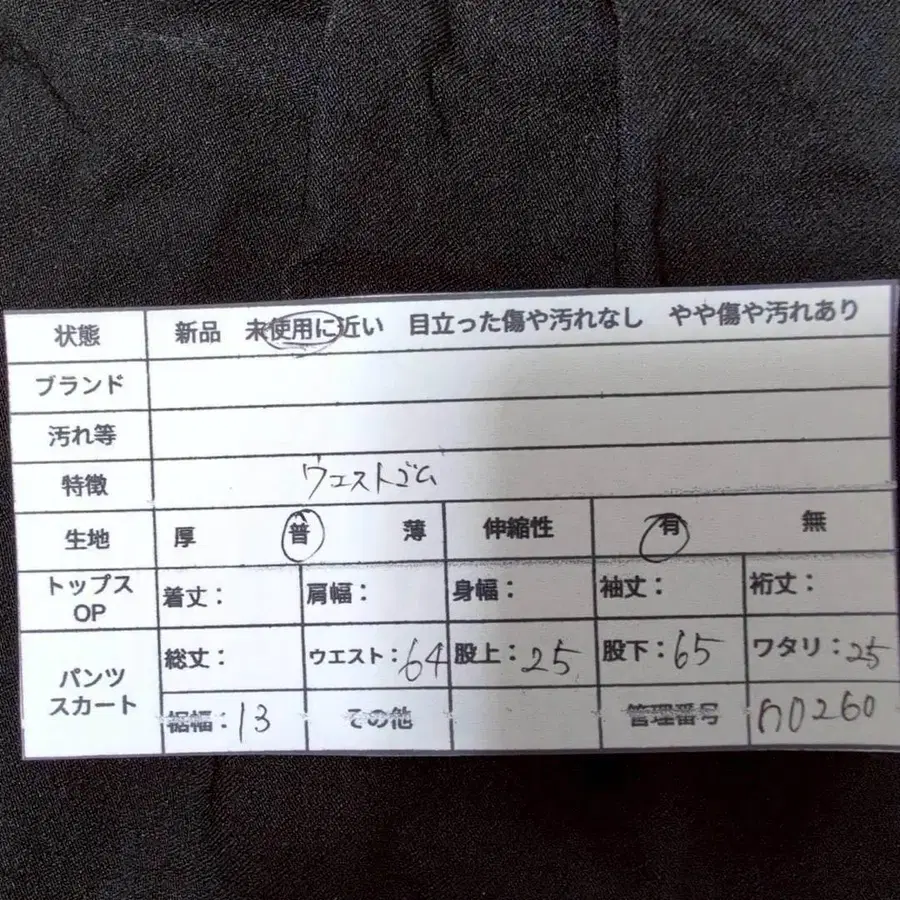 状態 新品 未使用に近い 目立った傷や汚れなし やや傷や汚れあり
ブランド
汚れ等
特徴 ウエストゴム
生地 厚 普 薄 伸縮性 有 無
トップス OP 着丈： 肩幅： 身幅： 袖丈： 裄丈：
パンツ スカート 総丈： ウエスト：64 股上：25 股下：65 ワタリ：25
裾幅：13 その他 管理番号 n0260